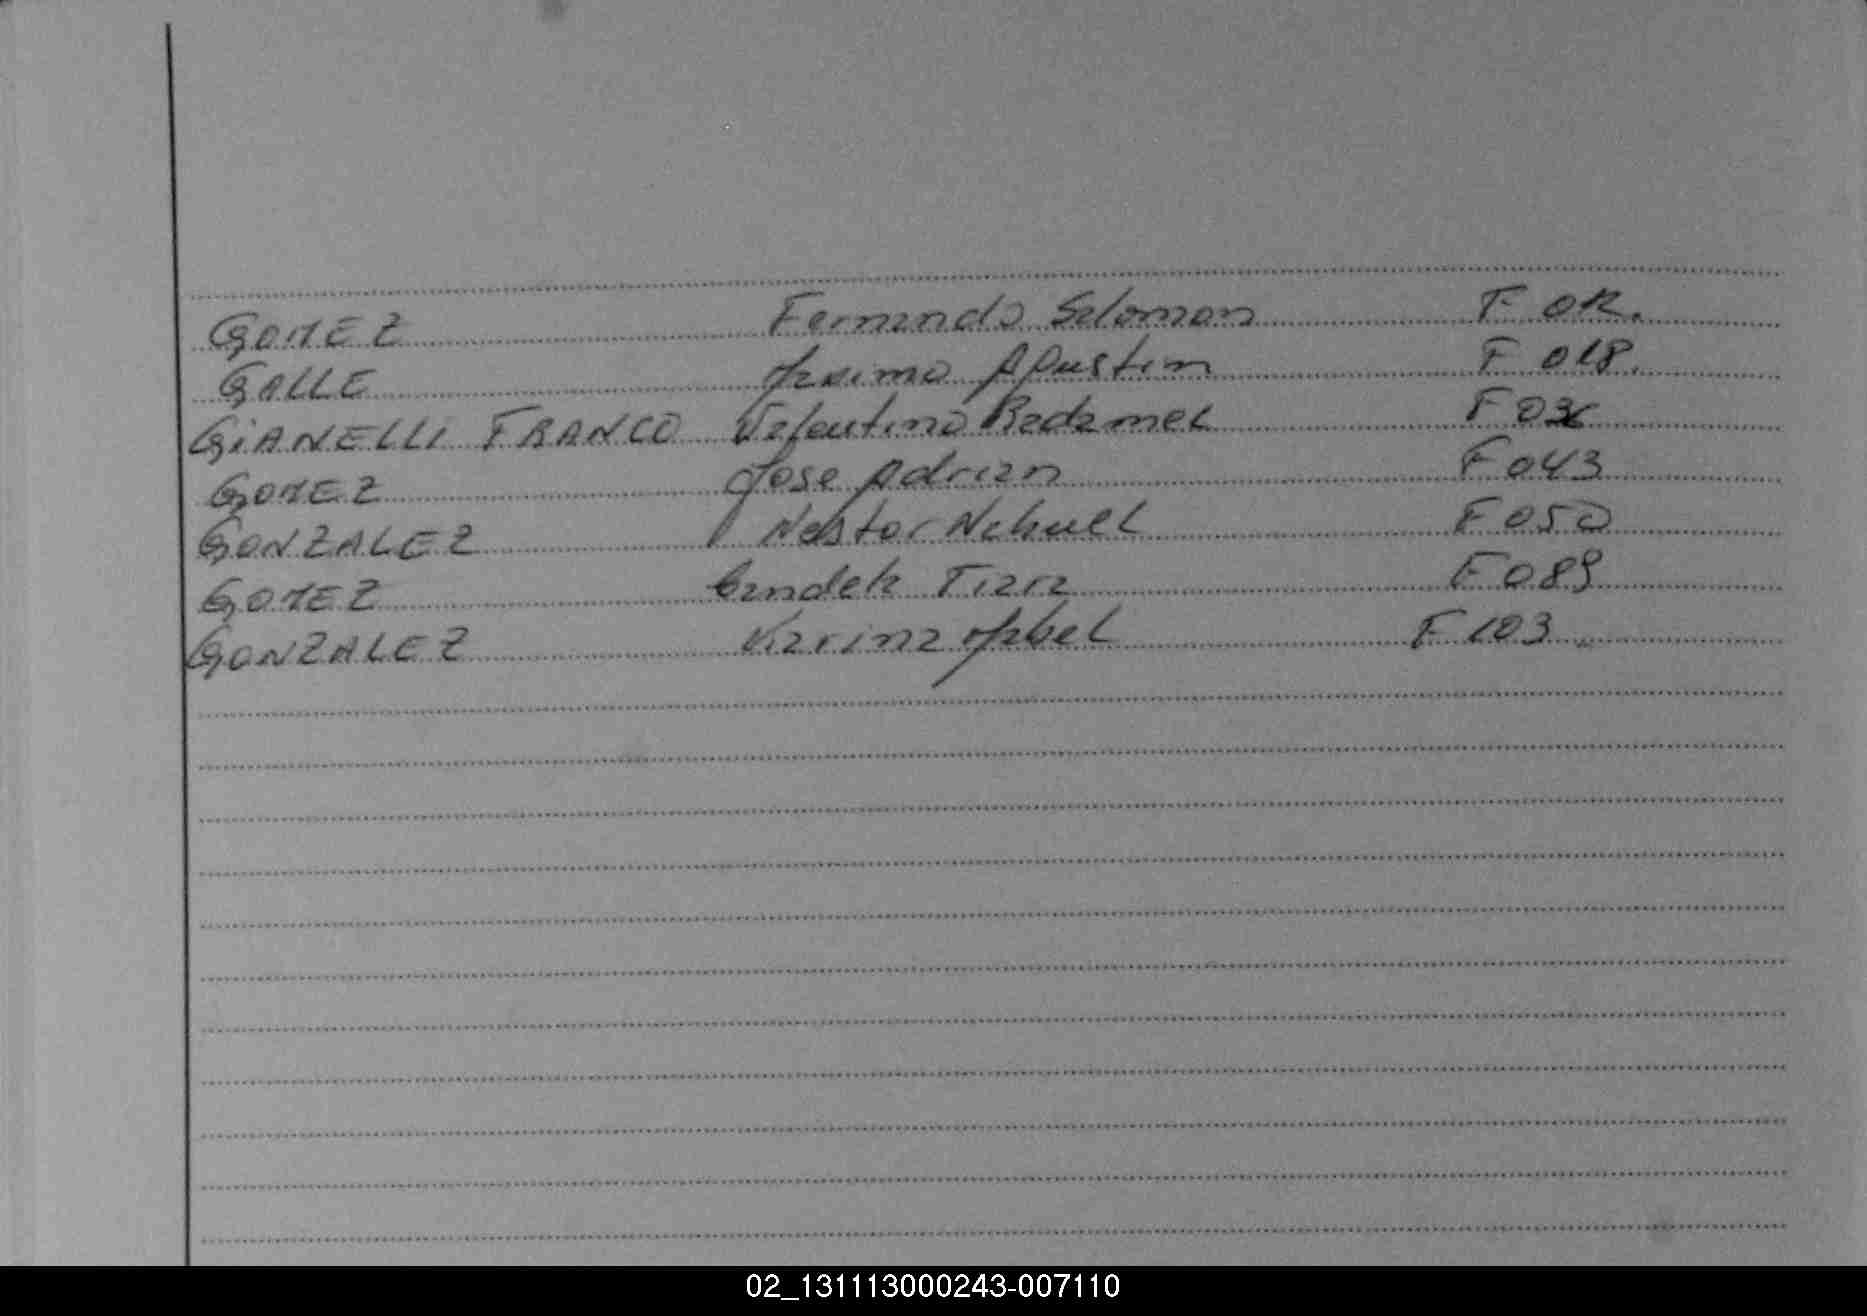 GOMEZ Fernando Salomon F 012.
GALLE Maximo Agustin F 018.
GIANELLI FRANCO Valentino Radamel F 036
GOMEZ Jose Adrian F 043
GONZALEZ Nestor Nehuel F 050
GOMEZ Tiara F 089
GONZALEZ Karina Mabel F 103
02_131113000243-007110